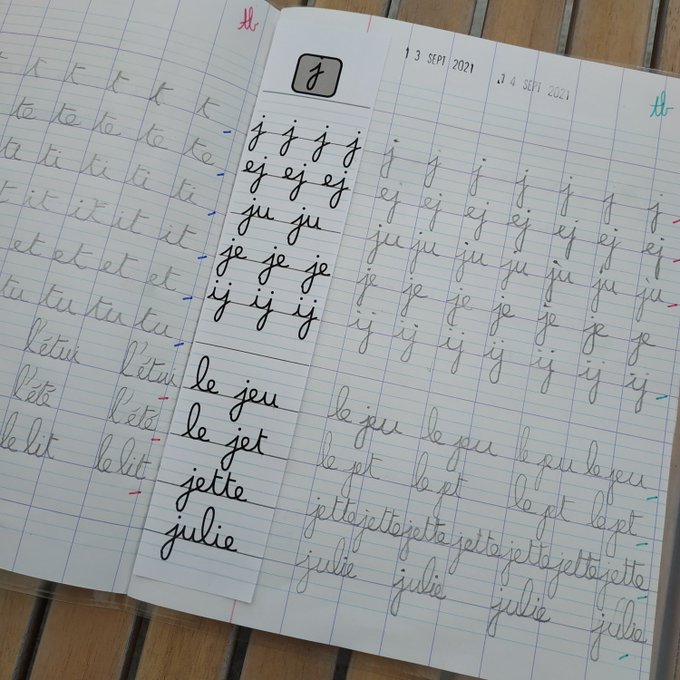 tb
t t t t t t
te te te te te
ti ti ti ti ti
it it it it
et et et et
tu tu tu tu
l'étui l'étui
l'été l'été
le lit le lit
j
13 SEPT 2021 14 SEPT 2021
tb
j j j j
ej ej ej
ju ju
je je je
ij ij ij
le jeu
le jet
jette
julie
j j j j j j j
ej ej ej ej ej ej ej
ju ju ju ju ju ju ju
je je je je je je je
ij ij ij ij ij ij ij
le jeu le jeu le jeu le jeu
le jet le jet le jet le jet
jette jette jette jette jette jette jette
julie julie julie julie